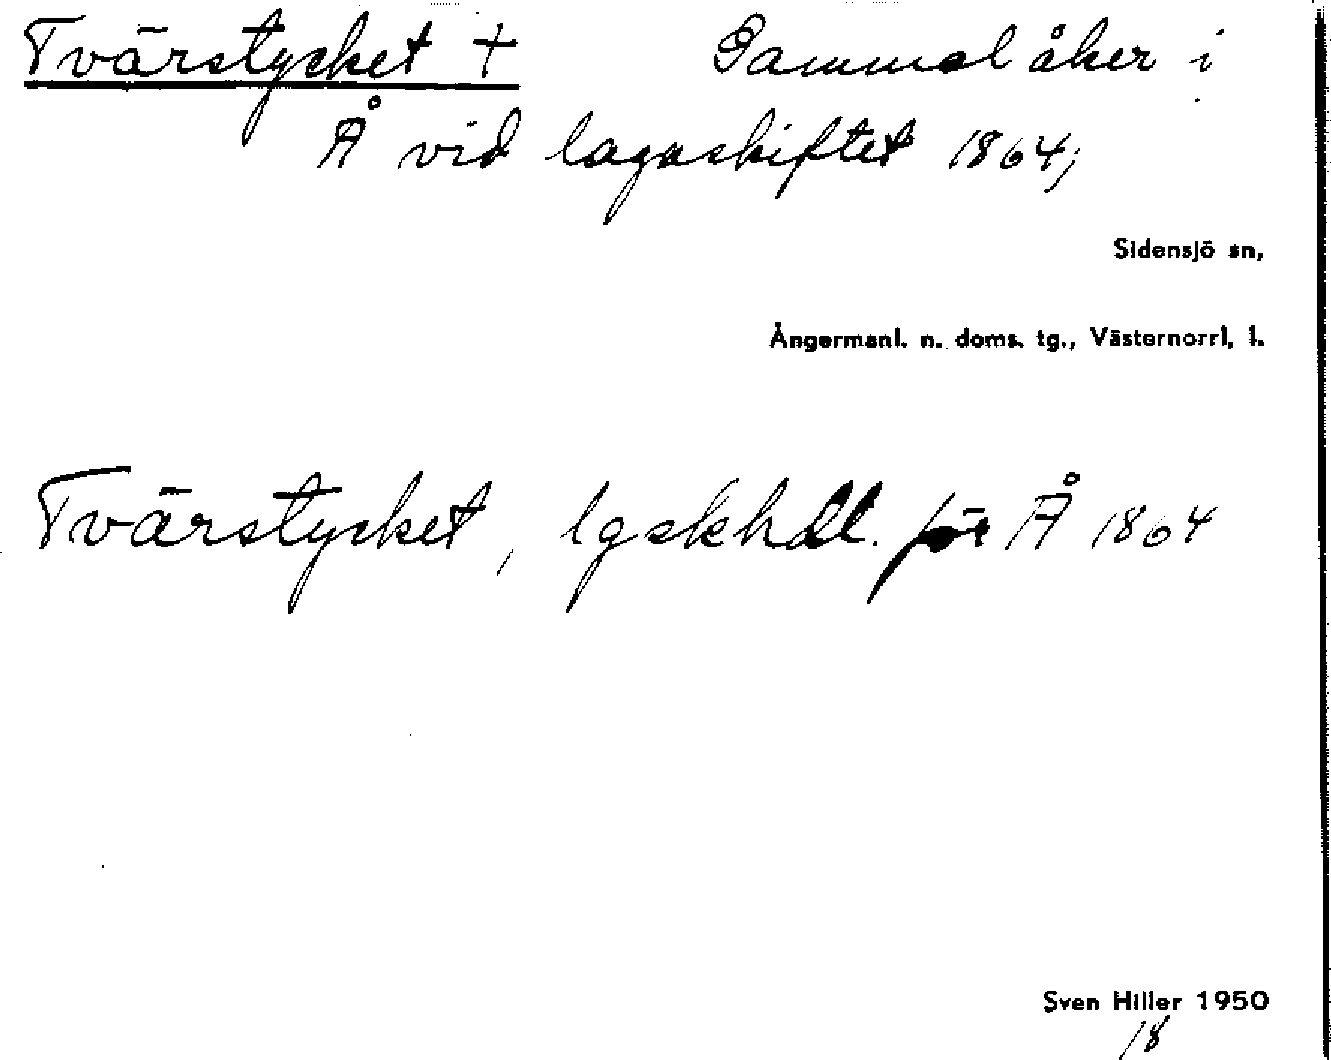 Tvärstycket + Gammal åker i
Å vid lagaskiftet 1864;
Sidensjö sn,
Ångermanl. n. doms. tg., Västernorrl. l.
Tvärstycket, lgskhdl. för Å 1864
Sven Hiller 1950
18